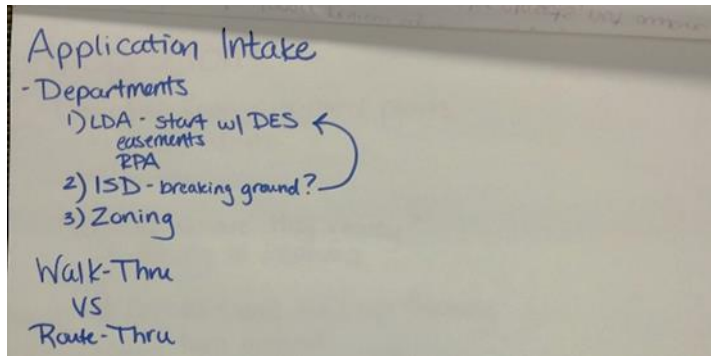 Application Intake
- Departments
1) LDA - start w/ DES
easements
RPA
2) ISD - breaking ground?
3) Zoning
Walk-Thru
VS
Route-Thru